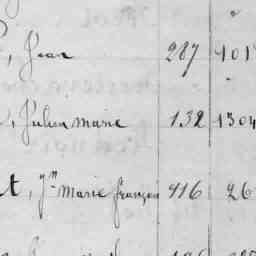 , Jean 287 401
, Julien marie 132 1304
t, Jn marie françois 416 26